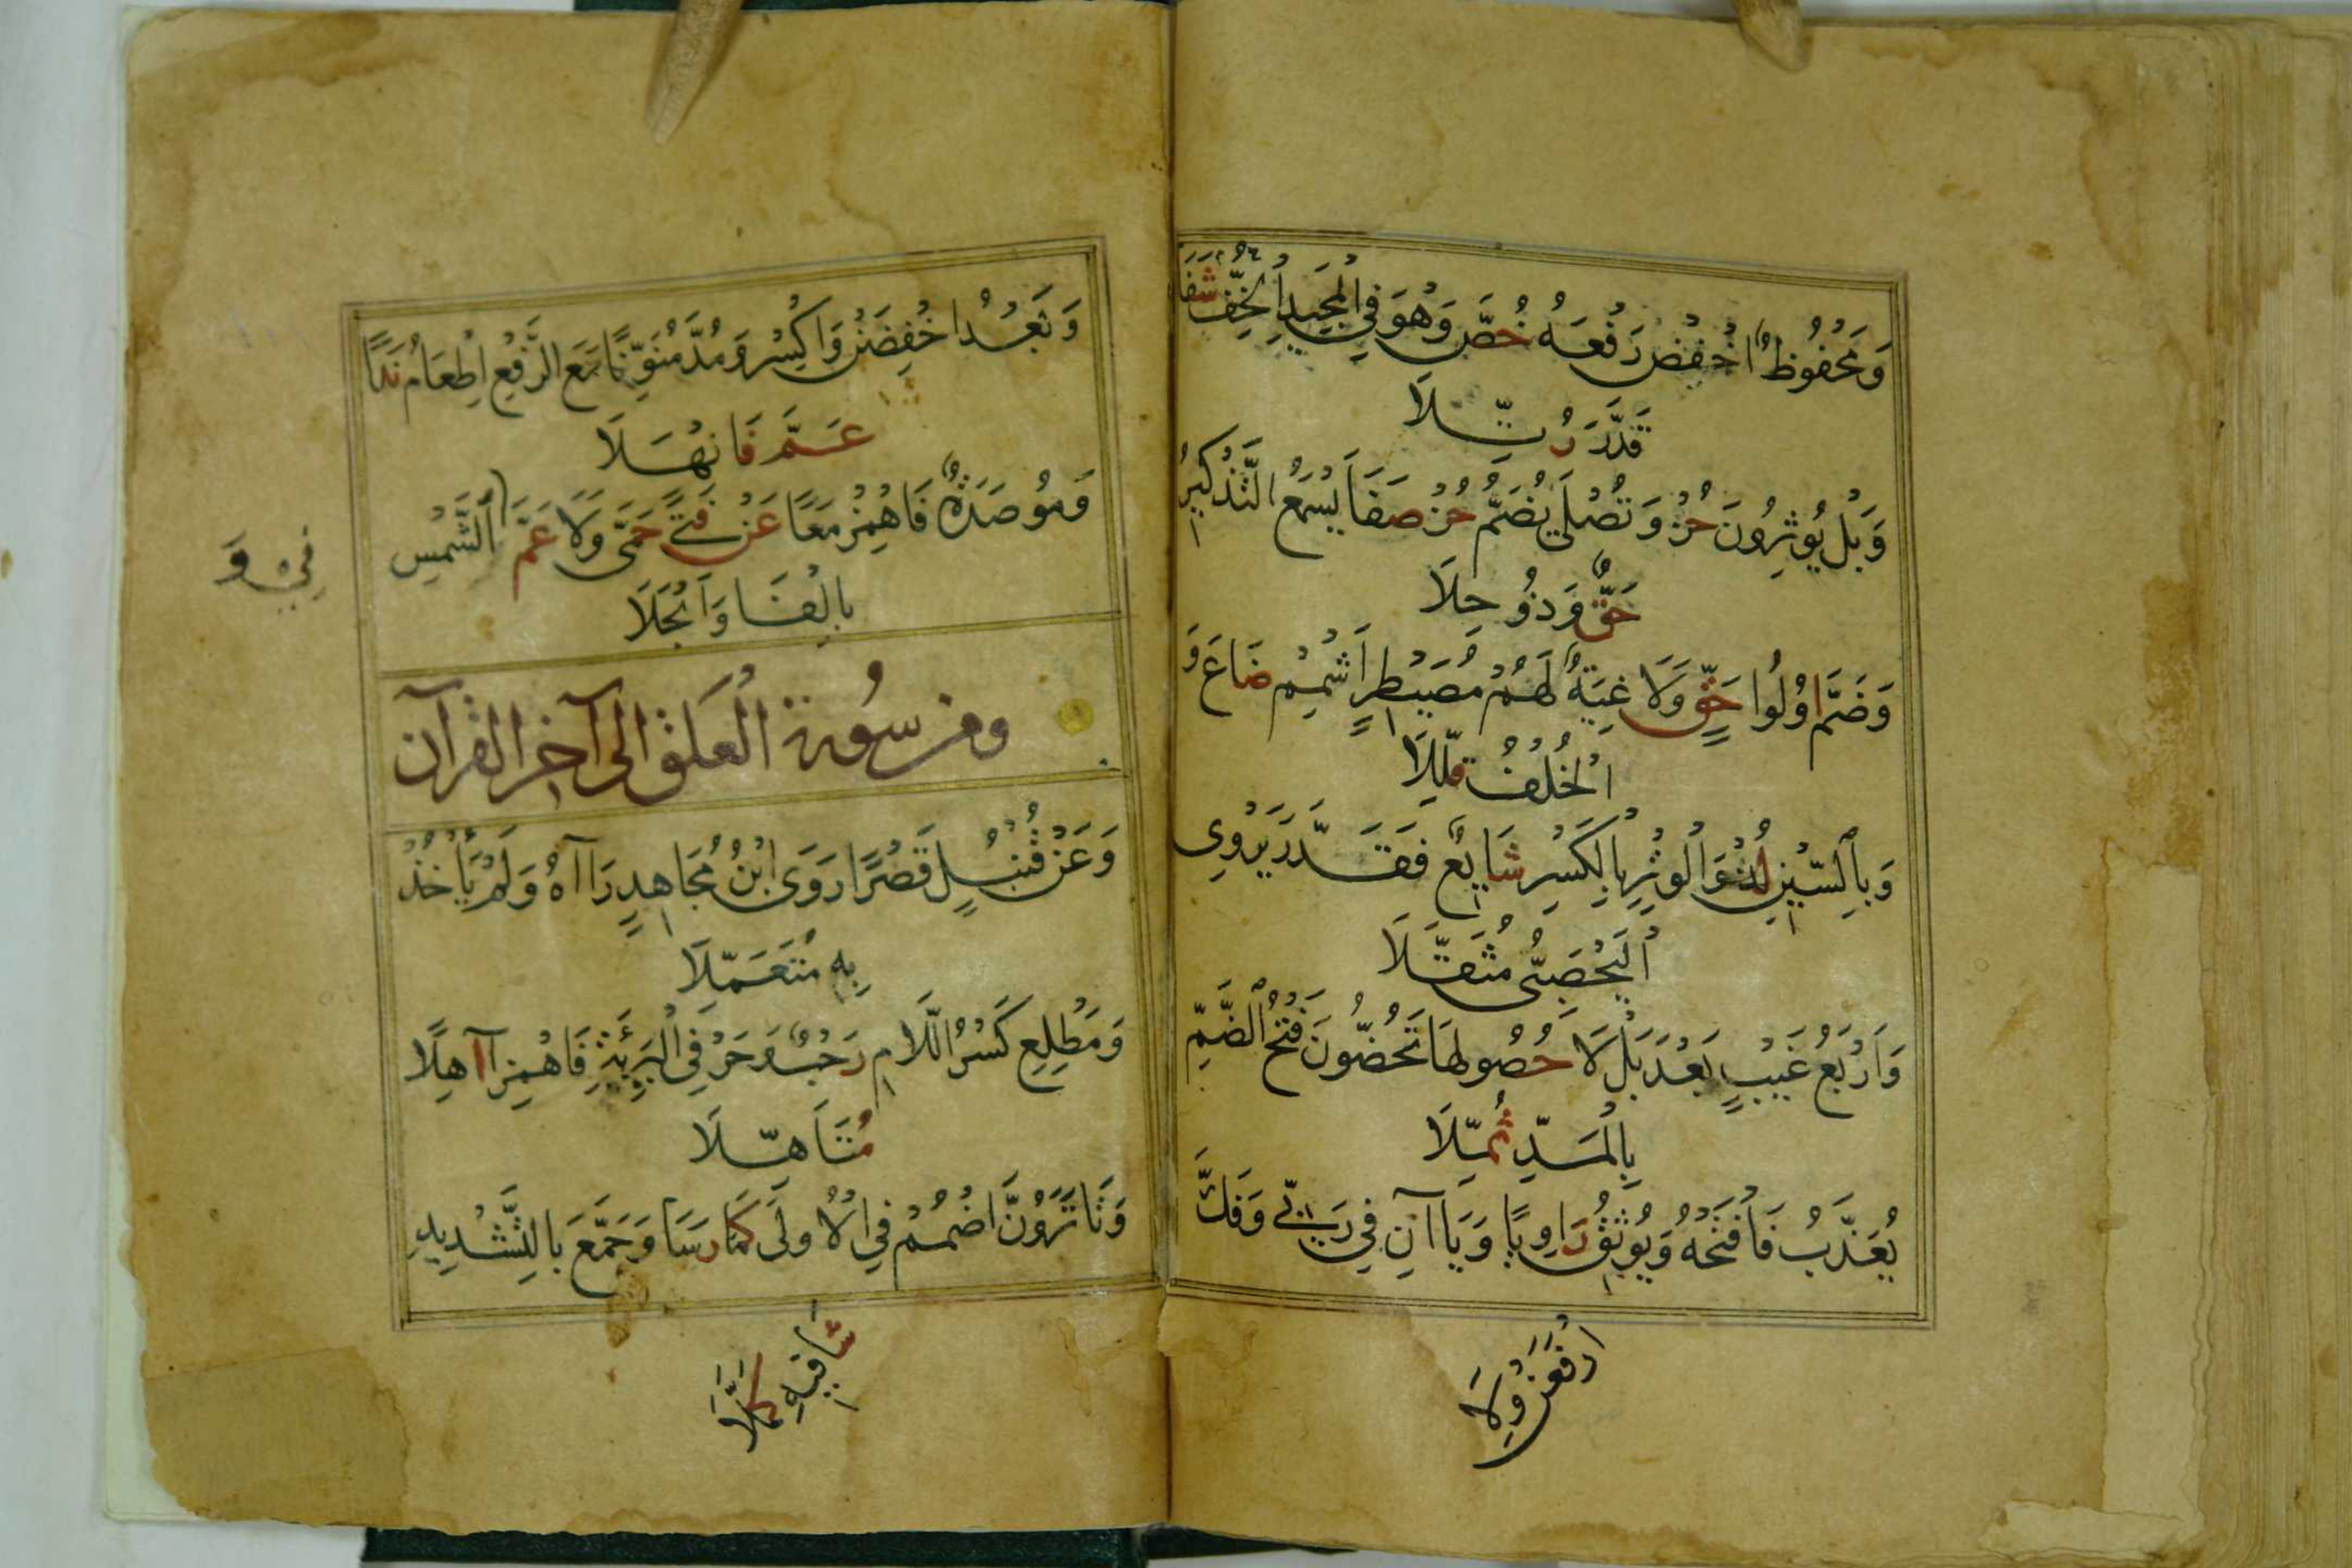 وَمَحْفُوظٌ اخْفِضْ رَفْعَهُ خُصَّ وَهُوَ فِي الْمَجِيدِ الْخِفُّ شَفَا
قَدَّرَ رُتِّلَا
وَبَلْ يُوثِرُونَ حُزْ وَتُصْلَى يُضَمُّ حُزْ صَفَا يُسْمَعُ التَّذْكِيرُ
حَقٌّ وَذُو جِلَا
وَضَمَّ اوُلُوا حَقٍّ وَلَا غِيَةٌ لَهُمْ مُصَيْطِرٍ اَشْمِمْ ضَاعَ وَ
الْخُلْفُ قُلِّلَا
وَبِالسِّيْنِ لُذْ وَالْوِتْرِ بِالْكَسْرِ شَايِعٌ فَقَدَّرَ يَرْوِى
الْيَحْصَبِىُّ مُثَقَّلَا
وَاَرْبَعُ غَيْبٍ بَعْدَ بَلْ لَا حُصُولُهَا تَحُضُّونَ فَتْحُ الضَّمِّ
بِالْمَدِّ ثُمِّلَا
يُعَذِّبُ فَافْتَحْهُ وَيُوثِقُ رَاوِيًا وَيَاآنِ فِي رَبِّي وَفَكُّ
ارْفَعَنْ وِلَا
وَبَعْدُ اخْفِضَنْ وَاكْسِرْ وَمُدَّ مُنَوِّنًا مَعَ الرَّفْعِ اِطْعَامٌ نَدًا
عَمَّ فَانْهَلَا
وَمُوصَدَةٌ فَاهْمِزْ مَعًا عَنْ فَتًى حَمَى وَلَا عَمَّ الشَّمْسِ
فِيْ وَ
بِالْفَا وَانْجَلَا
ومن سُورة الْعَلَق الى آخر القرآن
وَعَنْ قُنْبُلٍ قَصْرًا رَوَى ابْنُ مُجَاهِدٍ رَاآهُ وَلَمْ يَأْخُذْ
بِهِ مُتَعَمِّلَا
وَمَطْلِعِ كَسْرُ اللَّامِ رَحْبٌ وَحَرْفَي الْبَرِيَّئَةِ فَاهْمِزْ آهِلًا
مُتَاَهِّلَا
وَتَا تَرَوُنَّ اضْمُمْ فِي الْاُولَى كَمَا رَسَا وَجَمَّعَ بِالتَّشْدِيدِ
شَافِيهِ كَمَّلَا